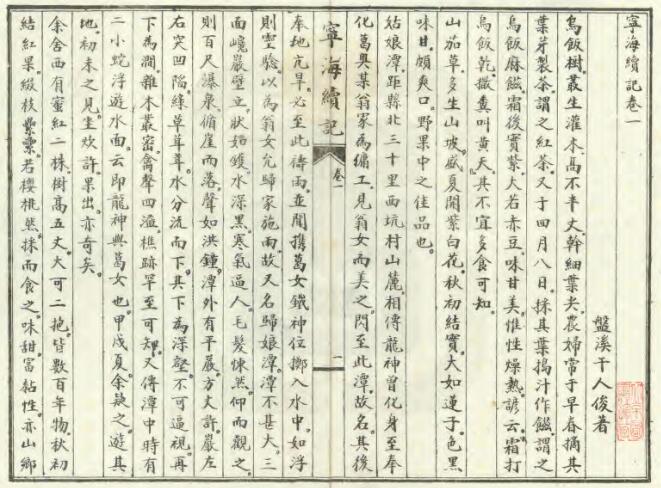 寧海續記卷一
盤溪干人俊著
烏飯樹叢生灌木高不半丈幹細葉尖農婦常于早春摘其
葉芽製茶謂之紅茶又于四月八日採其葉搗汁作餻謂之
烏飯麻餻霜後實紫大若赤豆味甘美惟性燥熱諺云霜打
烏飯乾撒糞叫黃天其不宜多食可知
山茄草多生山坡盛夏開紫白花秋初結實大如蓮子色黑
味甘頗爽口野果中之佳品也
姑娘潭距縣北三十里西坑村山麓相傳龍神曾化身至奉
化萬興某翁家為縫工見翁女而美之閃至此潭故名其後
寧海續記
卷一
一
奉地亢旱必至此禱雨並開携葛女鐵神位擲入水中如浮
則空驗以為翁女允歸家施雨故又名歸娘潭潭不甚大三
面巉巖壁立狀如鑊水深黑寒氣逼人毛髮悚然仰而觀之
則百尺瀑泉循崖而落聲如洪鐘潭外有平巖方丈許巖左
右突凹陷綠草茸茸水分流而下其下為深壑不可逼視再
下為澗雜木叢密禽聲四溢樵跡罕至可知又傳潭中時有
二小蛇浮遊水面云即龍神與葛女也甲戌夏余與之遊其
地初未之見坐炊許果出亦奇矣
余舍西有蜜紅二株樹高五丈大可二抱皆數百年物秋初
結紅果綴枝纍纍若櫻桃然採而食之味甜富黏性亦山鄉